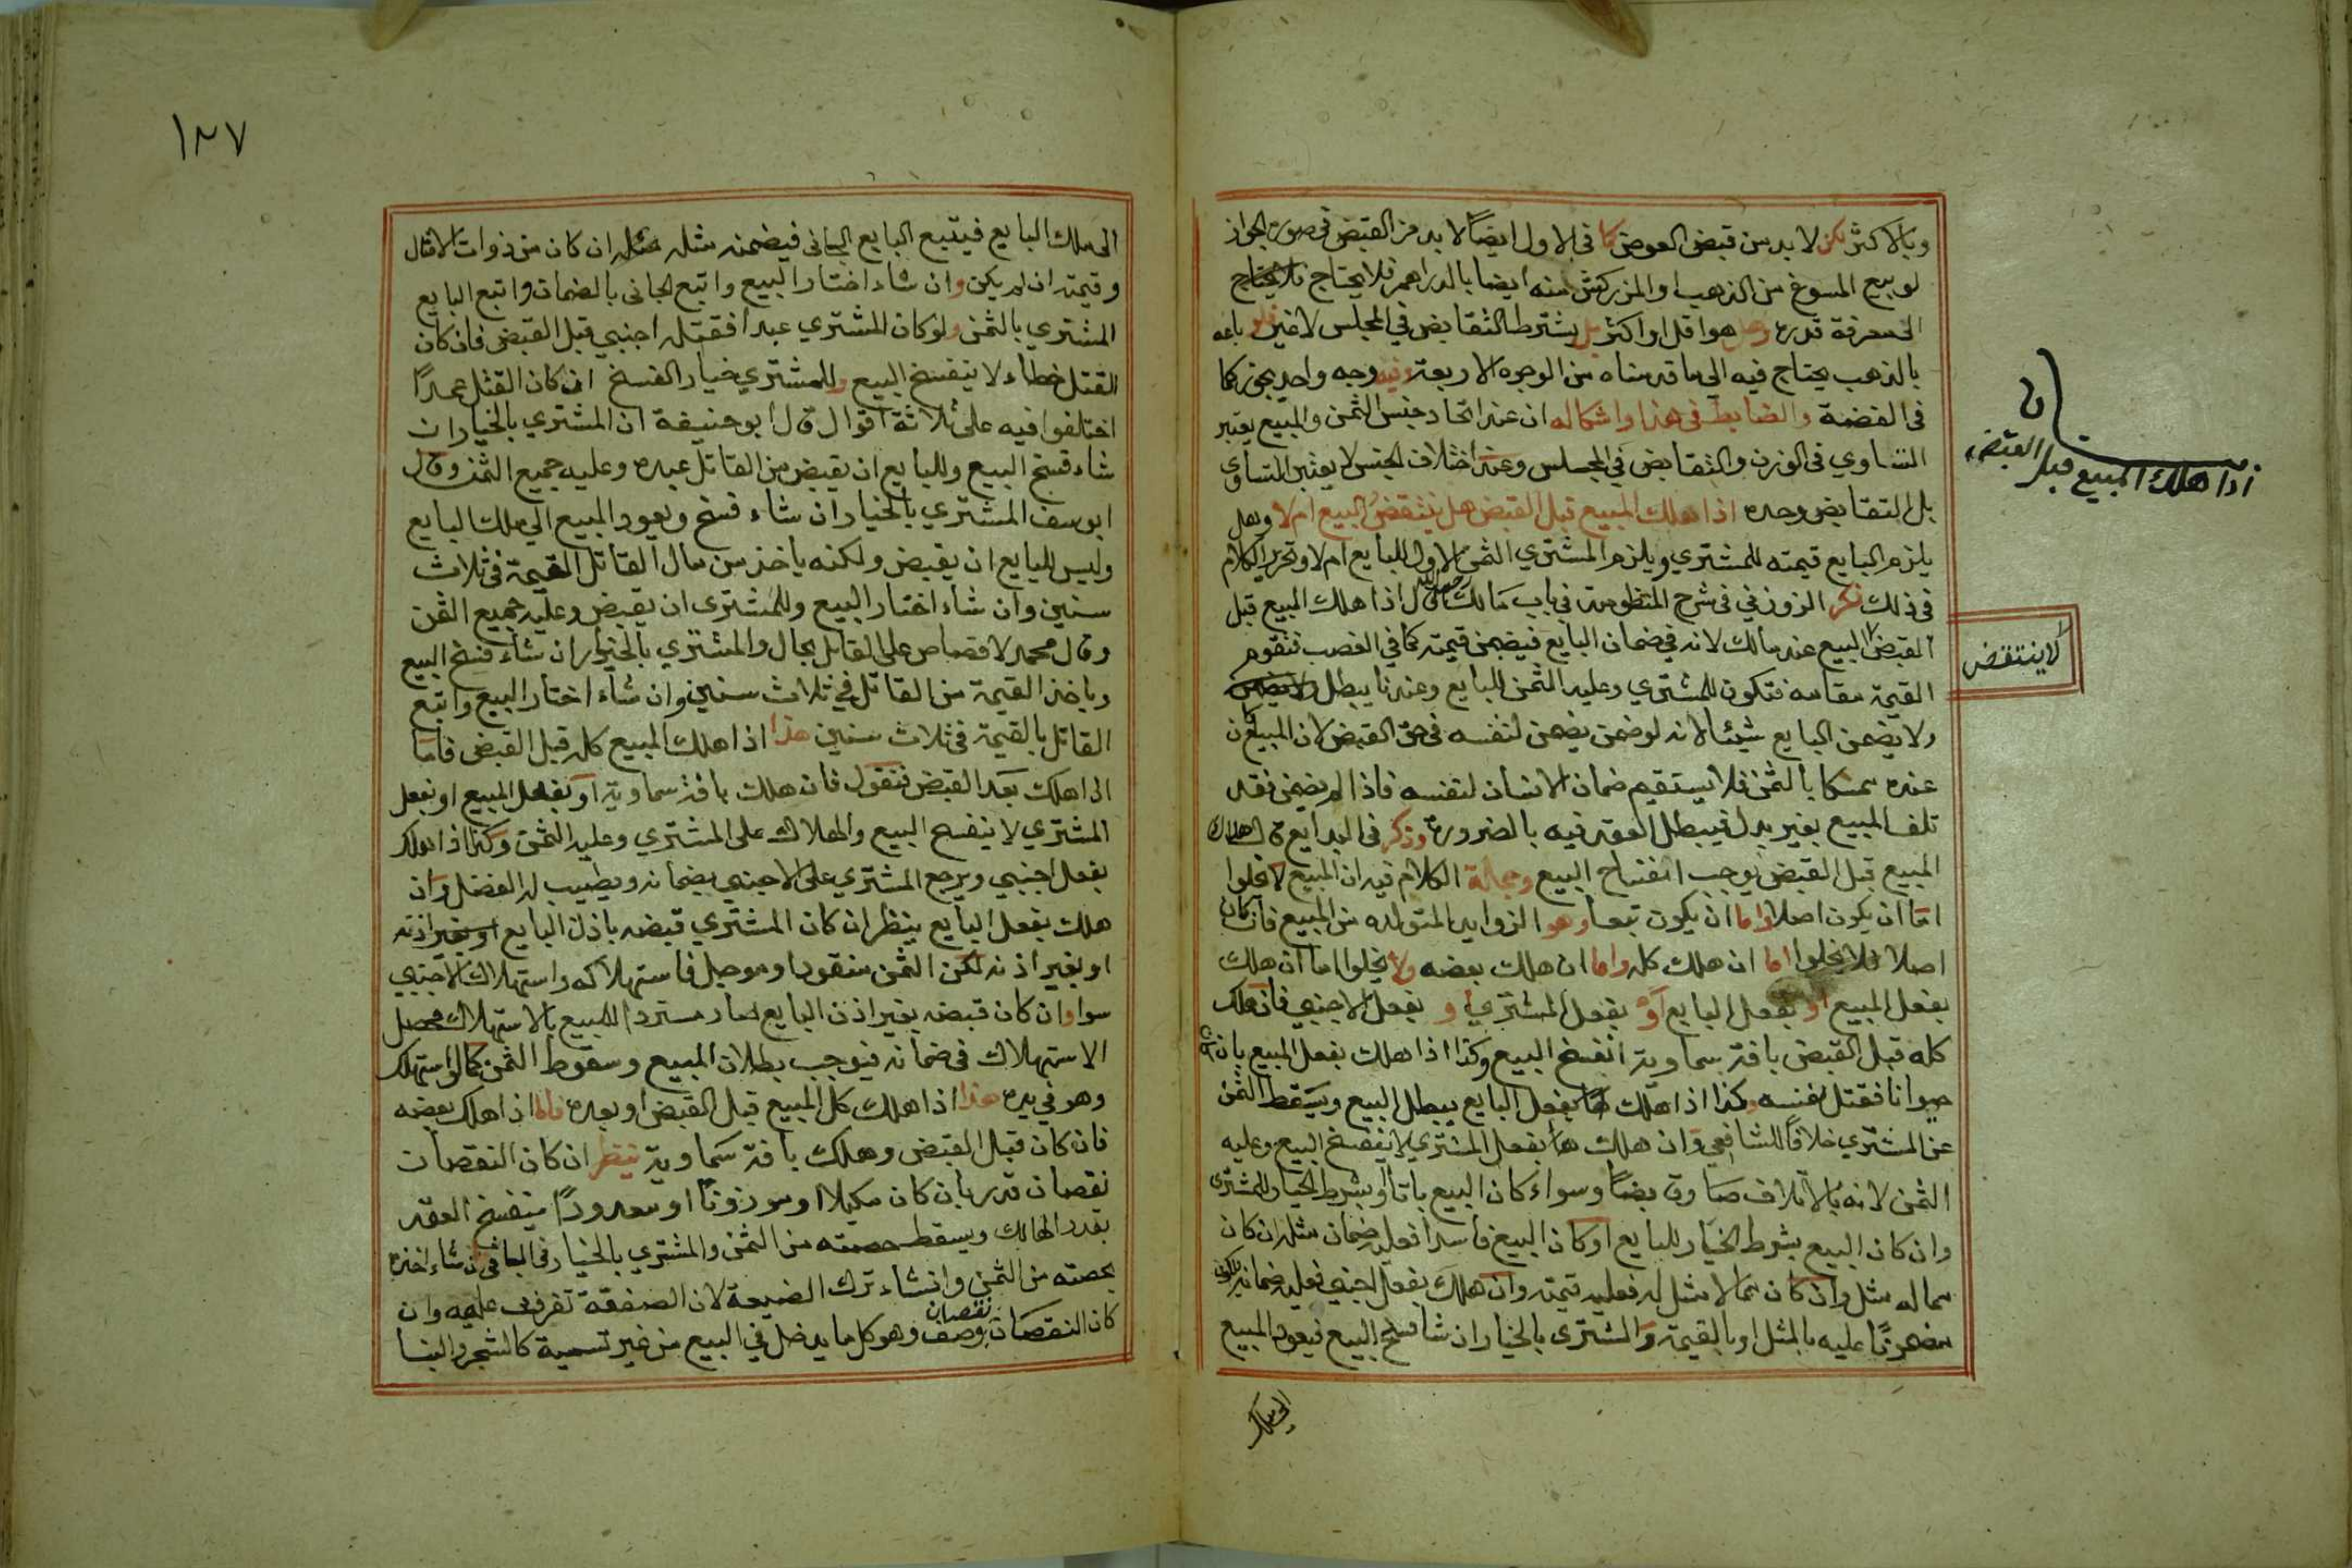 وبالاكثر لكن لابد من قبض العوض كما في الاول ايضًا لابد من القبض في صورة الجواز
لو بيع المسوغ من الذهب او المزركش منه ايضا بالدراهم فلا يحتاج
الى معرفة قدره وهل هو اقل او اكثر بل يشترط التقابض في المجلس لا غير فلو باعه
بالذهب يحتاج فيه الى ما قدمناه من الوجوه الاربعة وفيه وجه واحد يجوز كما
في الفضة والضابط في هذا واشكاله ان عند اتحاد جنس الثمن والمبيع يعتبر
التساوي في الوزن والتقابض في المجلس وعند اختلاف الجنس لا يعتبر التساوي
بل التقابض وحده اذا هلك المبيع قبل القبض هل ينتقض البيع ام لا وهل
يلزم البايع قيمته للمشتري ويلزم المشتري الثمن الاول للبايع ام لا وتحرير الكلام
في ذلك ذكر الزوزني في شرح المنظومة في باب مالك رحمه الله قال اذا هلك المبيع قبل
القبض البيع عند مالك لانه في ضمان البايع فيضمن قيمته كما في الغصب فتقوم
القيمة مقامه فتكون للمشتري وعليه الثمن للبايع وعندنا يبطل
ولا يضمن البايع شيئا لانه لو ضمن يضمن لنفسه في حق القبض لان المبيع كان
عنده ممسكا بالثمن فلا يستقيم ضمان الانسان لنفسه فاذا لم يضمن فقد
تلف المبيع بغير بدل فيبطل العقد فيه بالضرورة وذكر في البدايع قال هلاك
المبيع قبل القبض يوجب انفساخ البيع وجملة الكلام فيه ان المبيع لا يخلوا
اما ان يكون اصلا واما ان يكون تبعا وهو الزوايد المتولده من المبيع فان كان
اصلا فلا يخلوا اما ان هلك كله واما ان هلك بعضه ولا يخلوا اما ان هلك
بفعل المبيع او بفعل البايع او بفعل المشتري او بفعل الاجنبي فان هلك
كله قبل القبض بافة سماوية انفسخ البيع وكذا اذا هلك بفعل المبيع بان كان
حيوانا فقتل نفسه وكذا اذا هلك بفعل البايع يبطل البيع ويسقط الثمن
عن المشتري خلافًا للشافعي وان هلك بفعل المشتري لا ينفسخ البيع وعليه
الثمن لانه بالاتلاف صار قابضًا وسواء كان البيع باتا او بشرط الخيار للمشتري
وان كان البيع بشرط الخيار للبايع او كان البيع فاسدا فعليه ضمان مثله ان كان
مما له مثل وان كان مما لا مثل له فعليه قيمته وان هلك بفعل اجنبي فعليه ضمانه
مضمونًا عليه بالمثل او بالقيمة والمشترى بالخيار ان شا فسخ البيع فيعود المبيع
الى ملك
ن
اذا هلك المبيع قبل القبض
لا ينتقض
١٨٧
الى ملك البايع فيتبع البايع الجاني فيضمنه مثله ان كان من ذوات الامثال
وقيمته ان لم يكن وان شاء اختار البيع واتبع الجاني بالضمان واتبع البايع
المشتري بالثمن ولو كان المشتري عبدا فقتله اجنبي قبل القبض فان كان
القتل خطاء لا ينفسخ البيع وللمشتري خيار الفسخ ان كان القتل عمدًا
اختلفوا فيه على ثلاثة اقوال قال ابو حنيفة ان المشتري بالخيار ان
شاء فسخ البيع وللبايع ان يقبض من القاتل عبده وعليه جميع الثمن وقال
ابو يسف المشتري بالخيار ان شاء فسخ ويعود المبيع الى ملك البايع
وليس للبايع ان يقبض ولكنه ياخذ من مال القاتل القيمة في ثلاث
سنين وان شاء اختار البيع وللمشترى ان يقبض وعليه جميع الثمن
وقال محمد لا قصاص على القاتل بحال والمشتري بالخيار ان شاء فسخ البيع
وياخذ القيمة من القاتل في ثلاث سنين وان شاء اختار البيع واتبع
القاتل بالقيمة في ثلاث سنين هذا اذا هلك المبيع كله قبل القبض فاما
اذا هلك بعد القبض فنقول فان هلك بافة سماوية او بفعل المبيع او بفعل
المشتري لا ينفسخ البيع والهلاك على المشتري وعليه الثمن وكذا اذا هلك
بفعل اجنبي ويرجع المشتري على الاجنبي بضمانه ويطيب له الفضل وان
هلك بفعل البايع ينظر ان كان المشتري قبضه باذن البايع
او بغير اذنه لكن الثمن منقود او موجل فاستهلاكه واستهلاك الاجنبي
سوا وان كان قبضه بغير اذن البايع صار مستردا للمبيع بالاستهلاك فحصل
الاستهلاك في ضمانه فيوجب بطلان المبيع وسقوط الثمن كما لو استهلك
وهو في يده هذا اذا هلك كل المبيع قبل القبض او بعده فاما اذا هلك بعضه
فان كان قبل القبض وهلك بافة سماوية ينظر ان كان النقصان
نقصان قدر بان كان مكيلا او موزونًا او معدودًا ينفسخ العقد
بقدر الهالك ويسقط حصته من الثمن والمشتري بالخيار في الباقي ان شاء اخذه
بحصته من الثمن وان شاء ترك لان الصفقة تفرقت عليه وان
كان النقصان نقصان وصف وهو كل ما يدخل في البيع من غير تسمية كالشجر والبنا